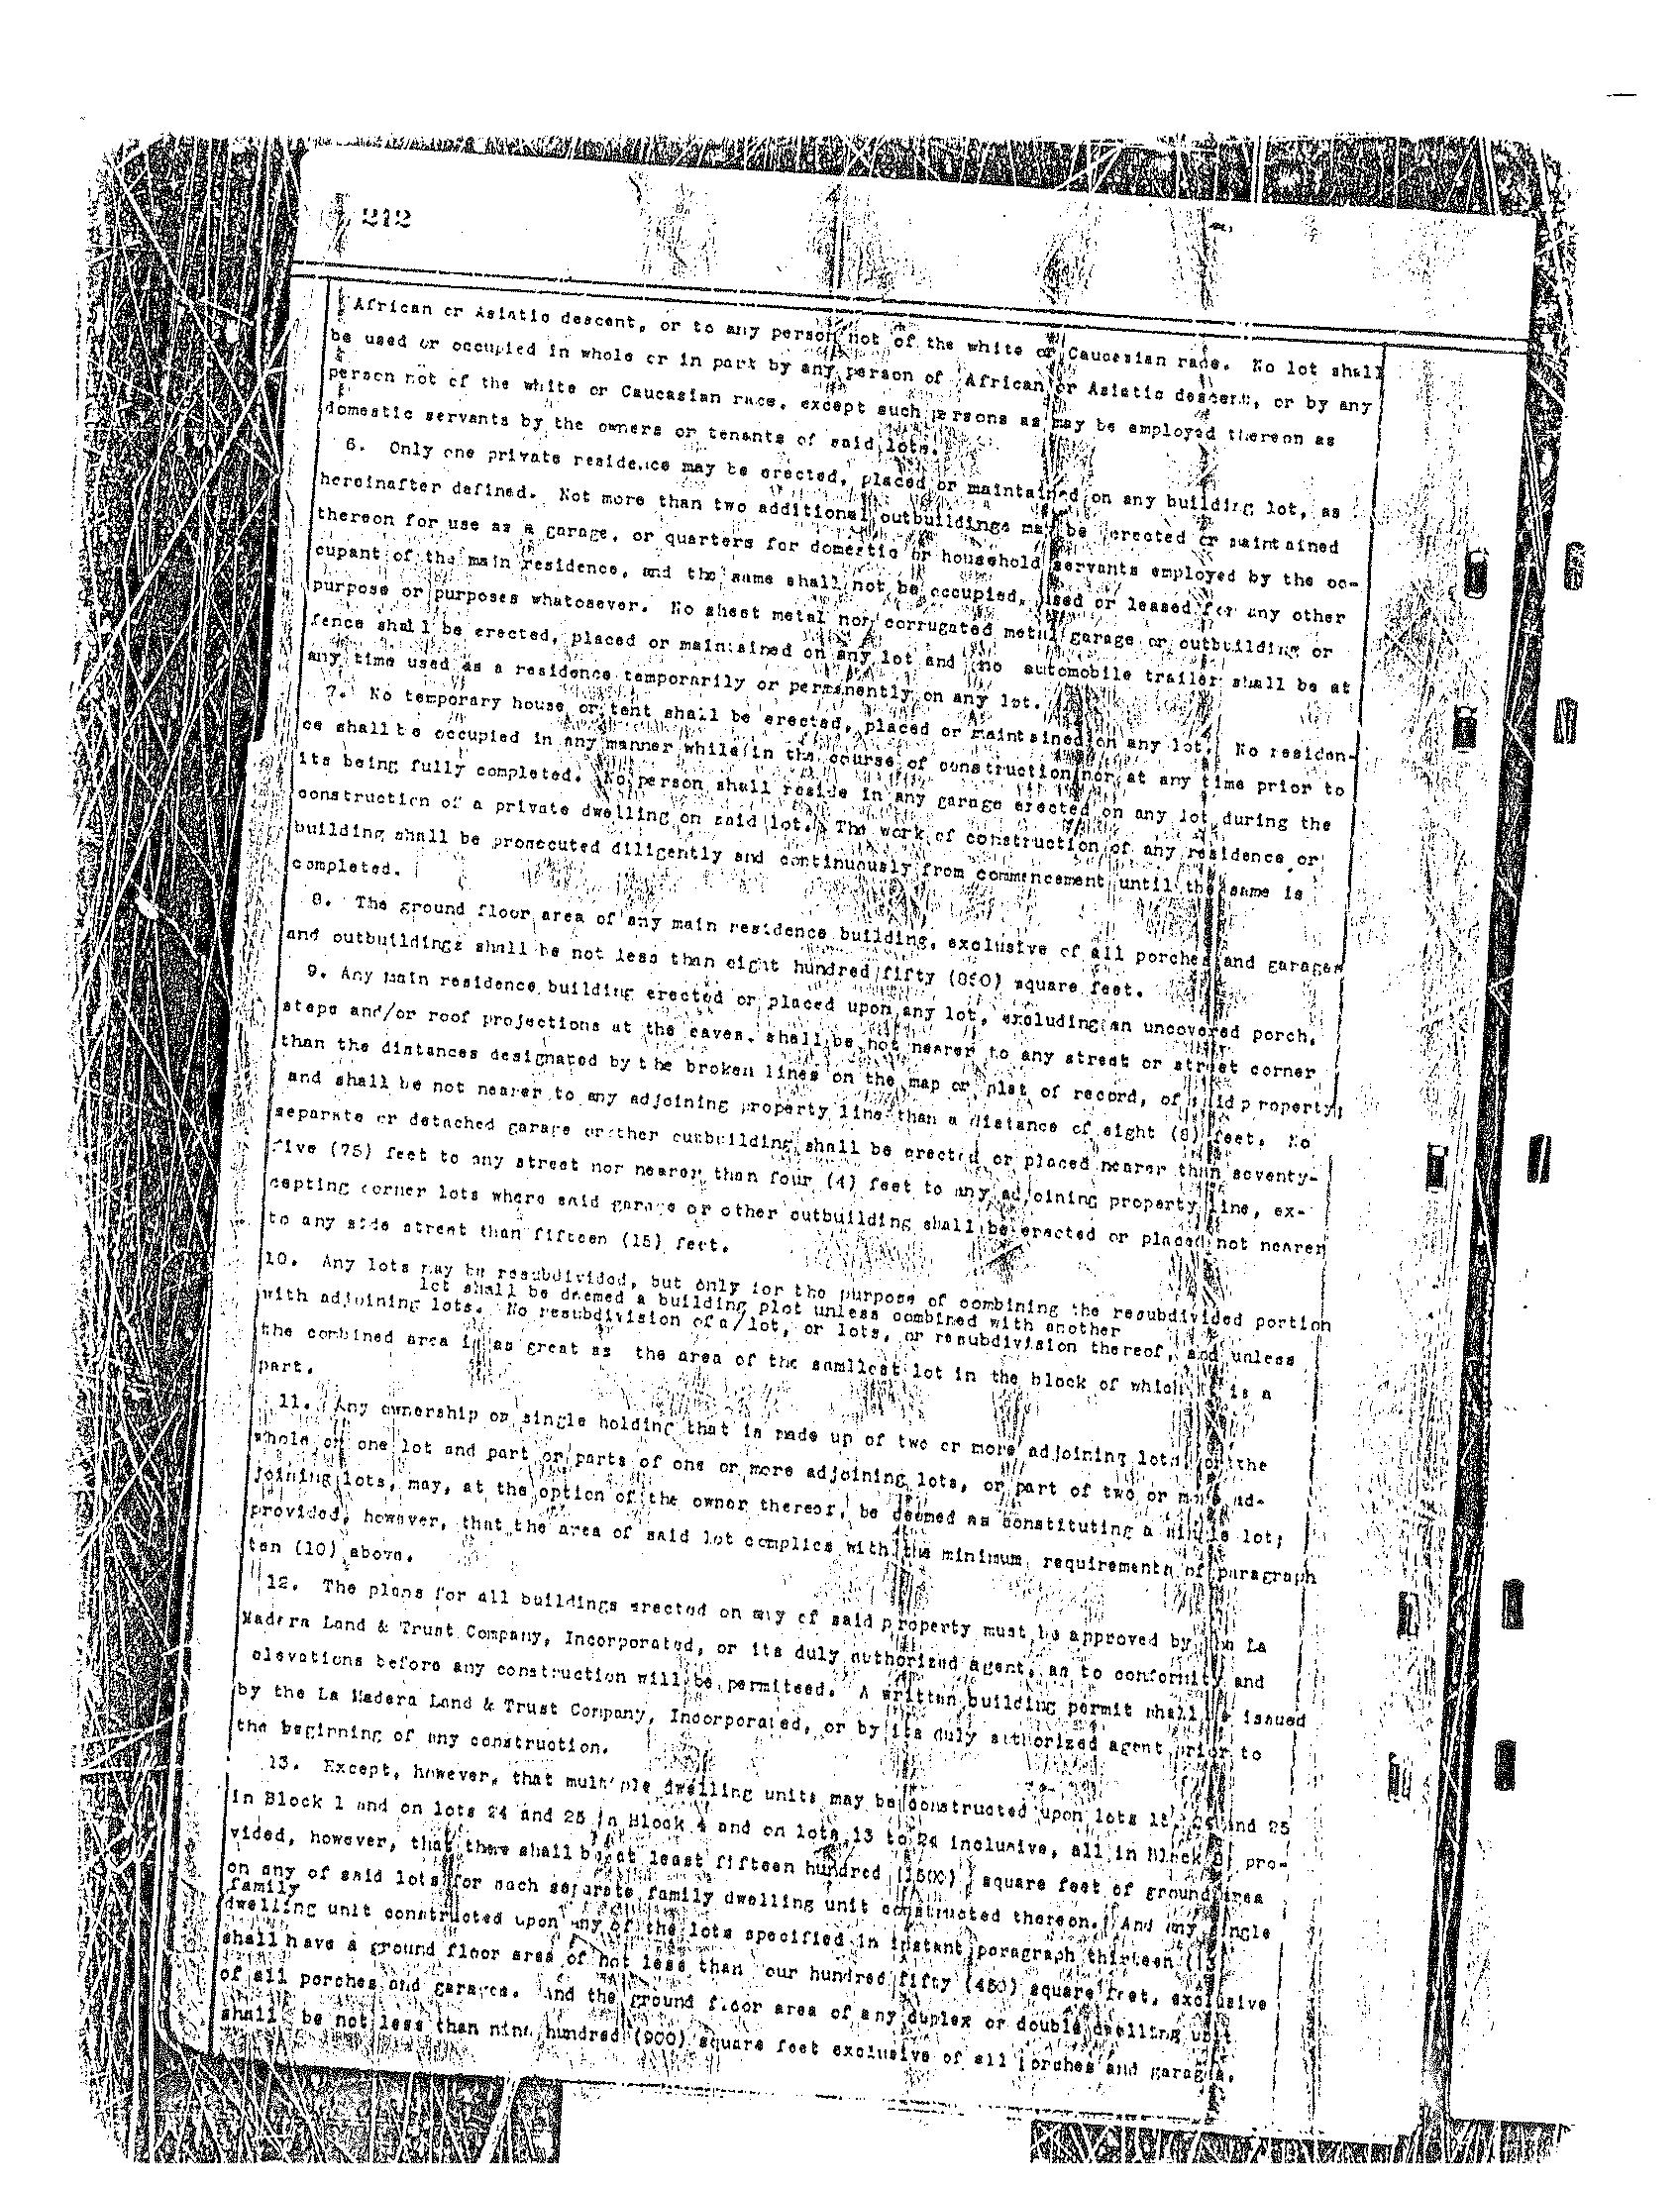 212
African or Asiatic descent, or to any person not of the white or Caucasian race. No lot shall
be used or occupied in whole or in part by any person of African or Asiatic descent, or by any
person not of the white or Caucasian race, except such persons as may be employed thereon as
domestic servants by the owners or tenants of said lots.
6. Only one private residence may be erected, placed or maintained on any building lot, as
hereinafter defined. Not more than two additional outbuildings may be erected or maintained
thereon for use as a garage, or quarters for domestic or household servants employed by the oc-
cupant of the main residence, and the same shall not be occupied, used or leased for any other
purpose or purposes whatosever. No sheet metal nor corrugated metal garage or outbuilding or
fence shall be erected, placed or maintained on any lot and no automobile trailer shall be at
any time used as a residence temporarily or permanently on any lot.
7. No temporary house or tent shall be erected, placed or maintained on any lot. No residen-
ce shall be occupied in any manner while in the course of construction nor at any time prior to
its being fully completed. No person shall reside in any garage erected on any lot during the
construction of a private dwelling on said lot. The work of construction of any residence or
building shall be prosecuted diligently and continuously from commencement until the same is
completed.
8. The ground floor area of any main residence building, exclusive of all porches and garages
and outbuildings shall be not less than eight hundred fifty (850) square feet.
9. Any main residence building erected or placed upon any lot, excluding an uncovered porch,
steps and/or roof projections at the eaves, shall be not nearer to any street or street corner
than the distances designated by the broken lines on the map or plat of record, of said property,
and shall be not nearer to any adjoining property line than a distance of eight (8) feet. No
separate or detached garage or other outbuilding shall be erected or placed nearer than seventy-
five (75) feet to any street nor nearer than four (4) feet to any adjoining property line, ex-
cepting corner lots where said garage or other outbuilding shall be erected or placed not nearer
to any side street than fifteen (15) feet.
10. Any lots may be resubdivided, but only for the purpose of combining the resubdivided portion
lot shall be deemed a building plot unless combined with another
with adjoining lots. No resubdivision of a/lot, or lots, or resubdivision thereof, and unless
the combined area is as great as the area of the samllest lot in the block of which it is a
part.
11. Any ownership or single holding that is made up of two or more adjoining lots, or the
whole of one lot and part or parts of one or more adjoining lots, or part of two or more ad-
joining lots, may, at the option of the owner thereof, be deemed as constituting a single lot;
provided, however, that the area of said lot complies with the minimum requirements of paragraph
ten (10) above.
12. The plans for all buildings erected on any of said property must be approved by the La
Madera Land & Trust Company, Incorporated, or its duly authorized agent, as to conformity and
elevations before any construction will be permiteed. A written building permit shall be issued
by the La Madera Land & Trust Company, Incorporated, or by its duly authorized agent prior to
the beginning of any construction.
13. Except, however, that multiple dwelling units may be constructed upon lots and 25
in Block 1 and on lots 24 and 25 in Block 4 and on lots 13 to 24 inclusive, all in Block pro-
vided, however, that there shall be at least fifteen hundred (1500) square feet of ground area
on any of said lots for each separate family dwelling unit constructed thereon. And any single
family
dwelling unit constructed upon any of the lots specified in instant paragraph thirteen (13)
shall have a ground floor area of not less than four hundred fifty (450) square feet, exclusive
of all porches and garages. And the ground floor area of any duplex or double dwelling unit
shall be not less than nine hundred (900) square feet exclusive of all porches and garages.